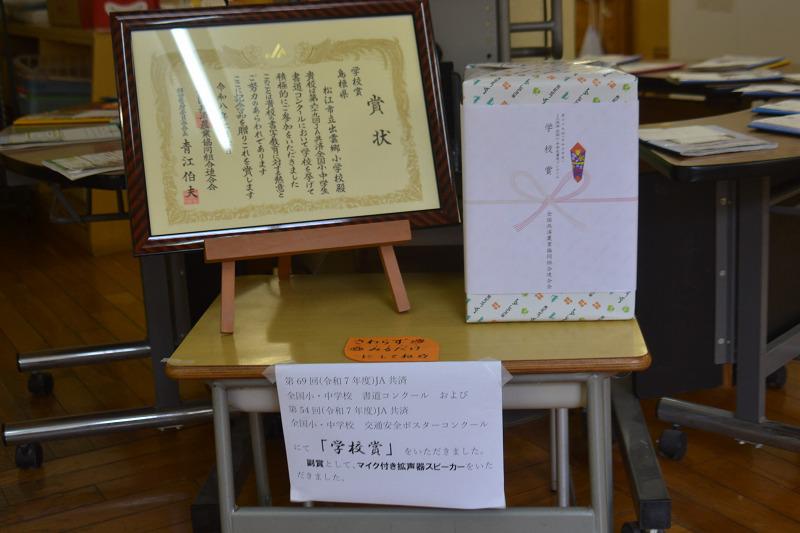 賞状
学校賞
島根県
松江市立出雲郷小学校殿
貴校は第六十九回JA共済全国小中学生
書道コンクールにおいて学校を挙げて
積極的にご参加をいただきました
このことは貴校の書写教育に対する熱意と
ご努力のあらわれであります
ここに記念品を贈りこれを賞します
令和八年
青江伯夫
学校賞
全国共済農業協同組合連合会
さわらず
みるだけ
にしてね
第69回(令和7年度)JA共済
全国小・中学校 書道コンクール および
第54回(令和7年度)JA共済
全国小・中学校 交通安全ポスターコンクール
にて「学校賞」をいただきました。
副賞として、マイク付き拡声器スピーカーをいた
だきました。